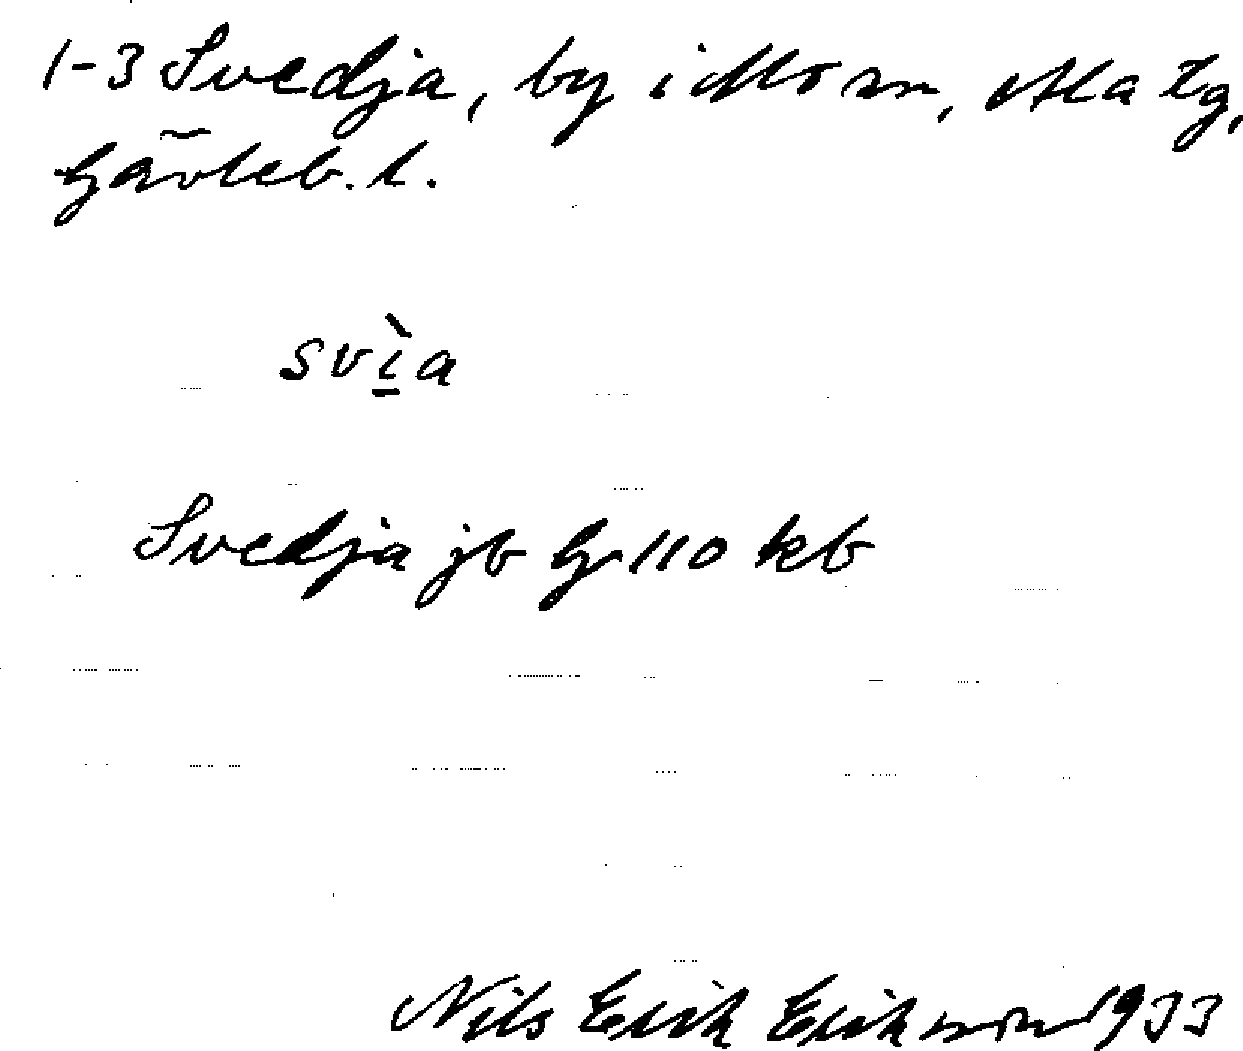 1-3 Svedja, by i Mo sn, Ala tg,
Gävleb. l.
svìa
Svedja jb G 110 kb
Nils Erik Eriksson 1933